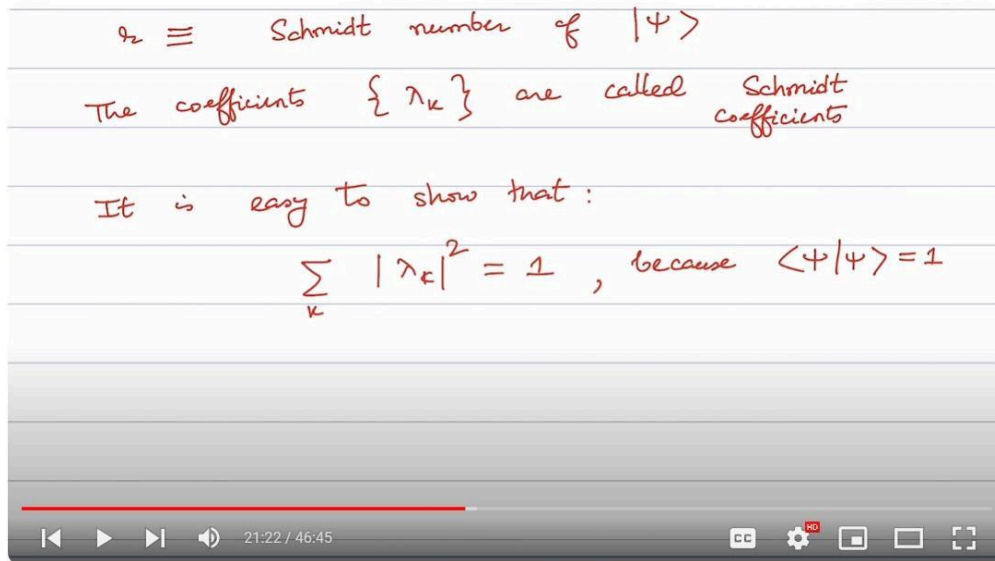 r ≡ Schmidt number of |ψ>
The coefficients { λ_k } are called Schmidt
coefficients
It is easy to show that :
∑_k |λ_k|² = 1 , because <ψ|ψ> = 1
21:22 / 46:45
CC
HD